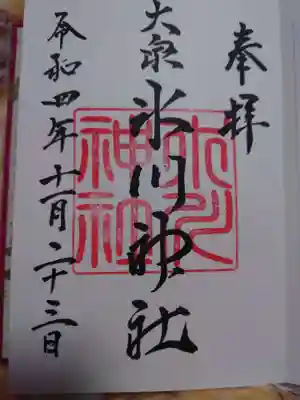 奉拝
大泉氷川神社
令和四年十一月二十三日
氷川神社